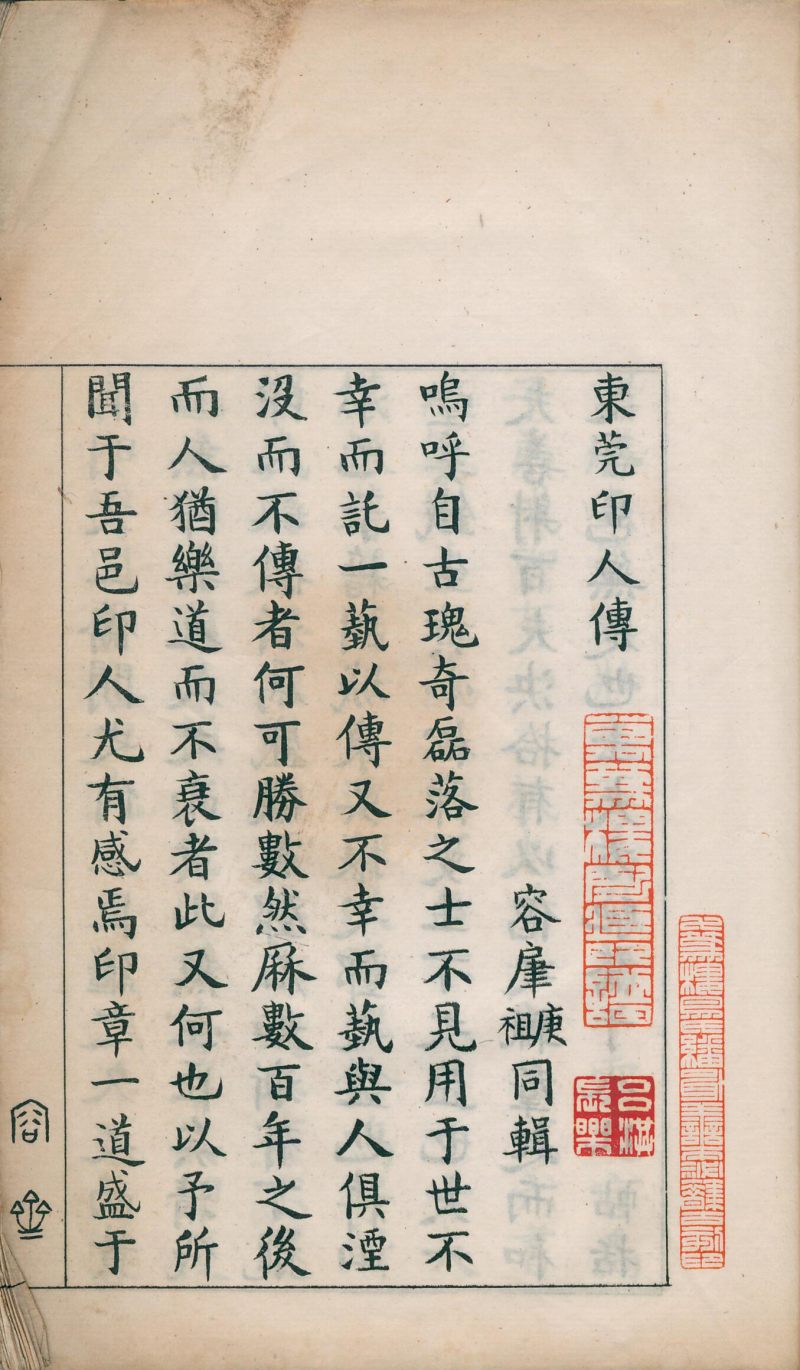 東莞印人傳
容庚肇祖同輯
嗚呼自古瑰奇磊落之士不見用于世不
幸而託一藝以傳又不幸而藝與人俱湮
沒而不傳者何可勝數然厤數百年之後
而人猶樂道而不衰者此又何也以予所
聞于吾邑印人尤有感焉印章一道盛于